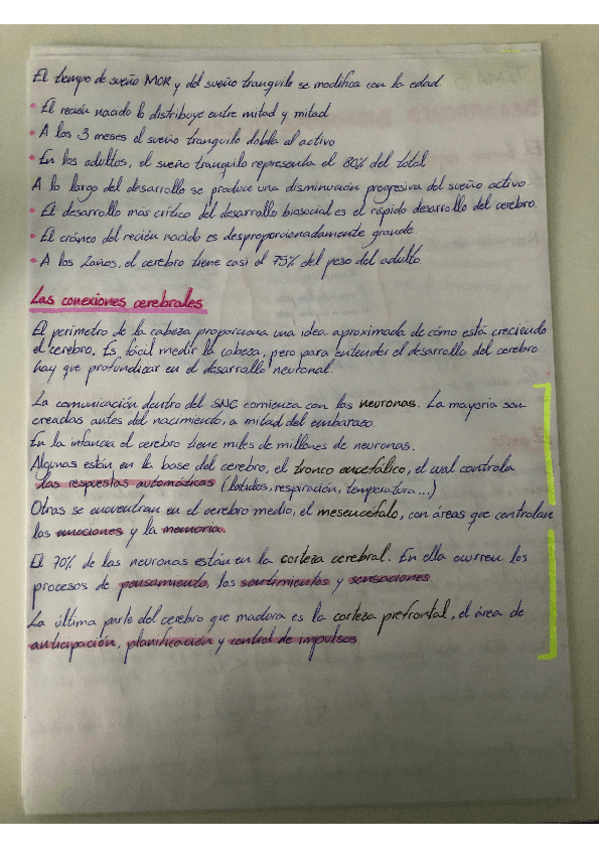 El tiempo de sueño MOR y del sueño tranquilo se modifica con la edad.
• El recién nacido lo distribuye entre mitad y mitad
• A los 3 meses el sueño tranquilo dobla al activo
• En los adultos, el sueño tranquilo representa el 80% del total
A lo largo del desarrollo se produce una disminución progresiva del sueño activo.
• El desarrollo más crítico del desarrollo biosocial es el rápido desarrollo del cerebro.
• El cráneo del recién nacido es desproporcionadamente grande
• A los 2años, el cerebro tiene casi el 75% del peso del adulto.
Las conexiones cerebrales
El perímetro de la cabeza proporciona una idea aproximada de cómo está creciendo
el cerebro. Es fácil medir la cabeza, pero para entender el desarrollo del cerebro
hay que profundizar en el desarrollo neuronal.
La comunicación dentro del SNC comienza con las neuronas. La mayoría son
creadas antes del nacimiento, a mitad del embarazo.
En la infancia el cerebro tiene miles de millones de neuronas.
Algunas están en la base del cerebro, el tronco encefálico, el cual controla
las respuestas automáticas (latidos, respiración, temperatura...)
Otras se encuentran en el cerebro medio, el mesencefalo, con áreas que controlan
las emociones y la memoria.
El 70% de las neuronas están en la corteza cerebral. En ella ocurren los
procesos de pensamiento, los sentimientos y sensaciones.
La última parte del cerebro que madura es la corteza prefrontal, el área de
anticipación, planificación y control de impulsos.